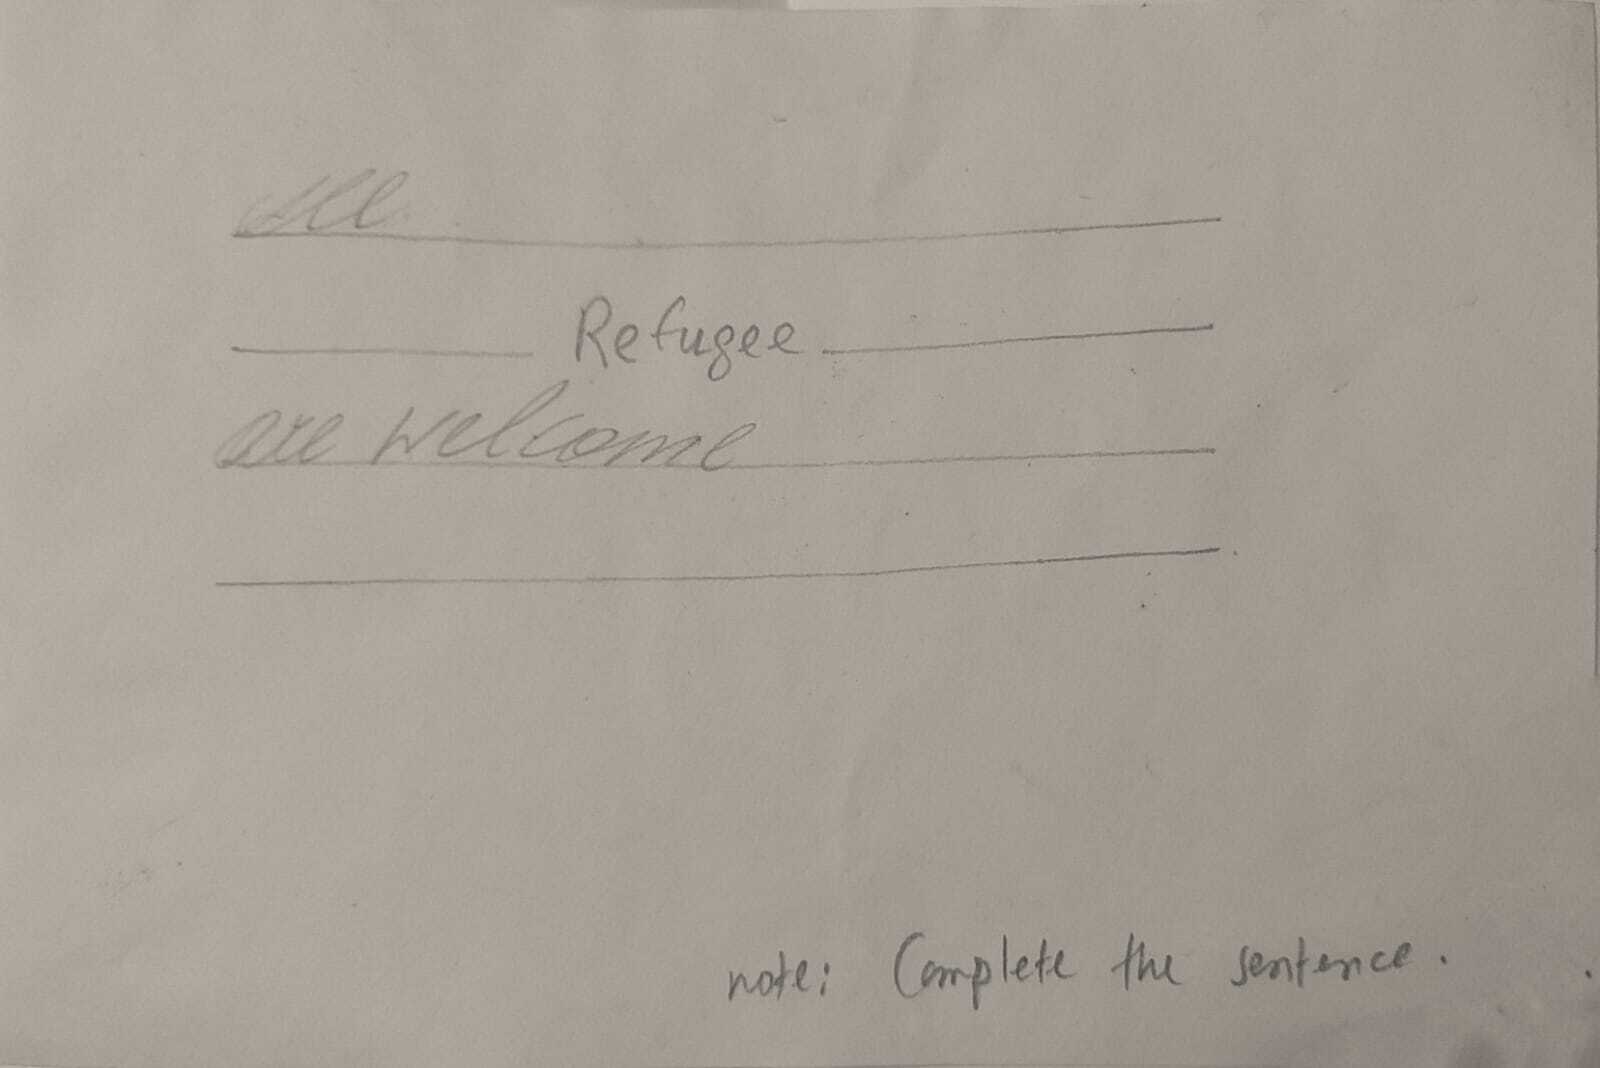 All
Refugee
are welcome
note: Complete the sentence.